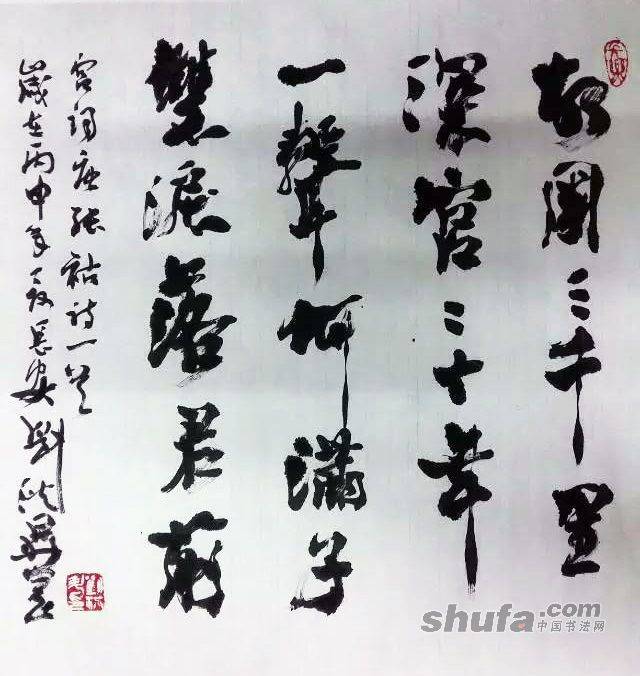 故國三千里
深宮二十年
一聲何滿子
雙淚落君前
宮詞唐張祜詩一首
歲在丙申年夏長安劉
shufa.com
中国书法网